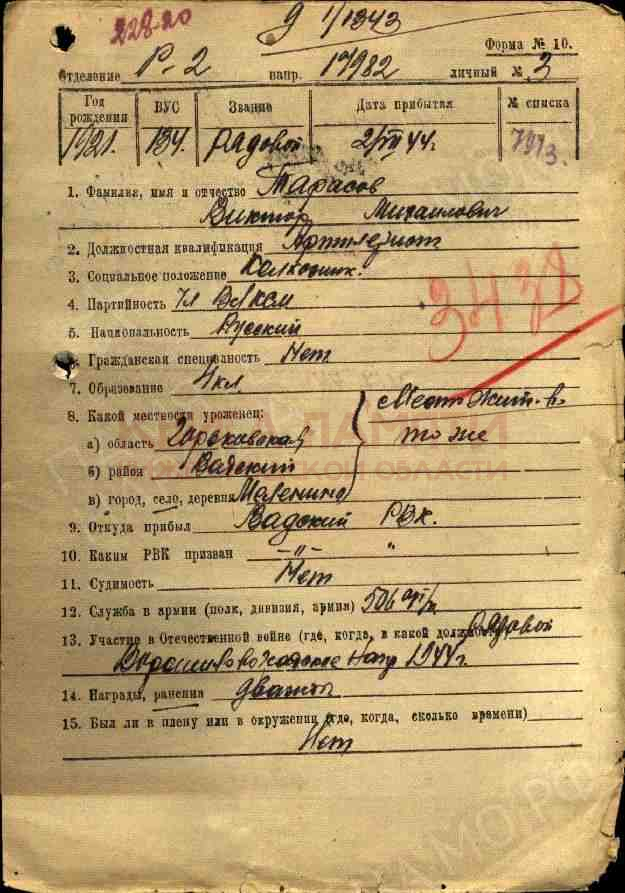 22820
9 1/1343
Форма № 10.
Отделение Р-2 напр. 17982 личный № 3
Год рождения ВУС Звание Дата прибытия № списка
1921. 134. Рядовой 2/VIII 44г 7973.
1. Фамилия, имя и отчество Тарасов
Виктор Михайлович
2. Должностная квалификация Артилерист
3. Социальное положение Колхозник.
4. Партийность Чл ВЛКСМ
3438
5. Национальность Русский
6. Гражданская специальность Нет
7. Образование 4 кл.
8. Какой местности уроженец: Место жит-в.
а) область Горьковская то же
б) район Вадский
в) город, село, деревня Меленино
9. Откуда прибыл Вадский РВК.
10. Каким РВК призван —"— "
11. Судимость Нет
12. Служба в армии (полк, дивизия, армия) 506 арт/п
13. Участие в Отечественной войне (где, когда, в какой должн Рядовой
1944г.
14. Награды, ранения дважды
15. Был ли в плену или в окружении (где, когда, сколько времени)
Нет